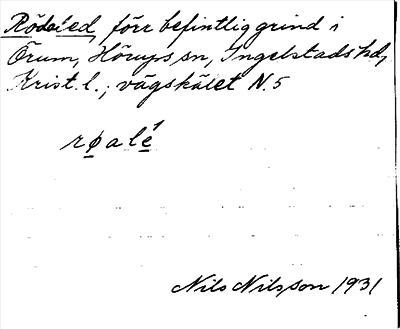 Rödaled, förr befintlig grind i
Örum, Hörups sn, Ingelstads hd,
Krist. l.; vägskälet N. 5
røalé
Nils Nilsson 1931